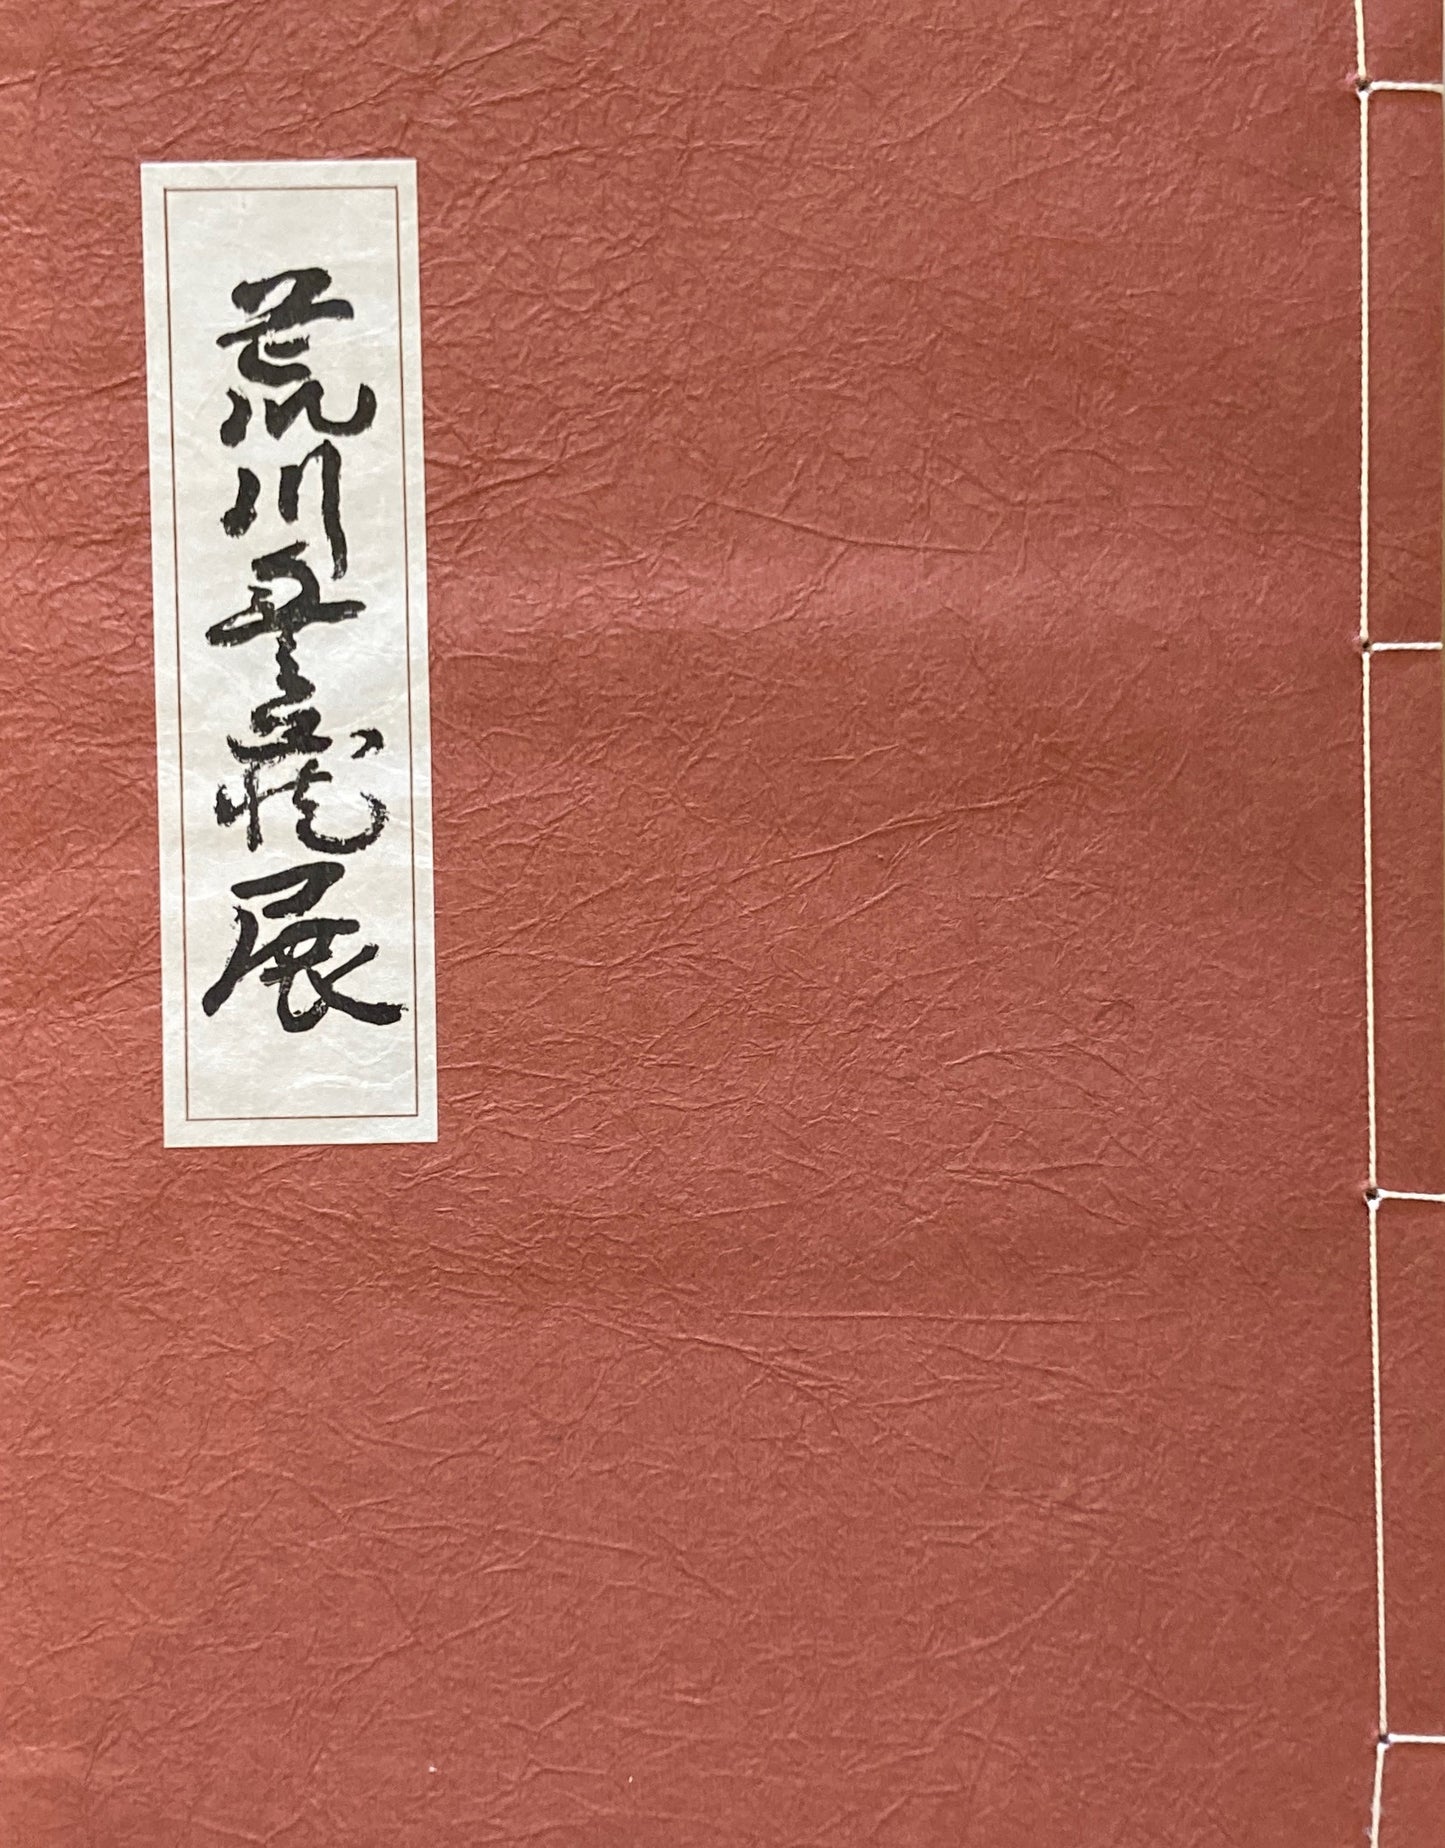 荒川豊蔵展